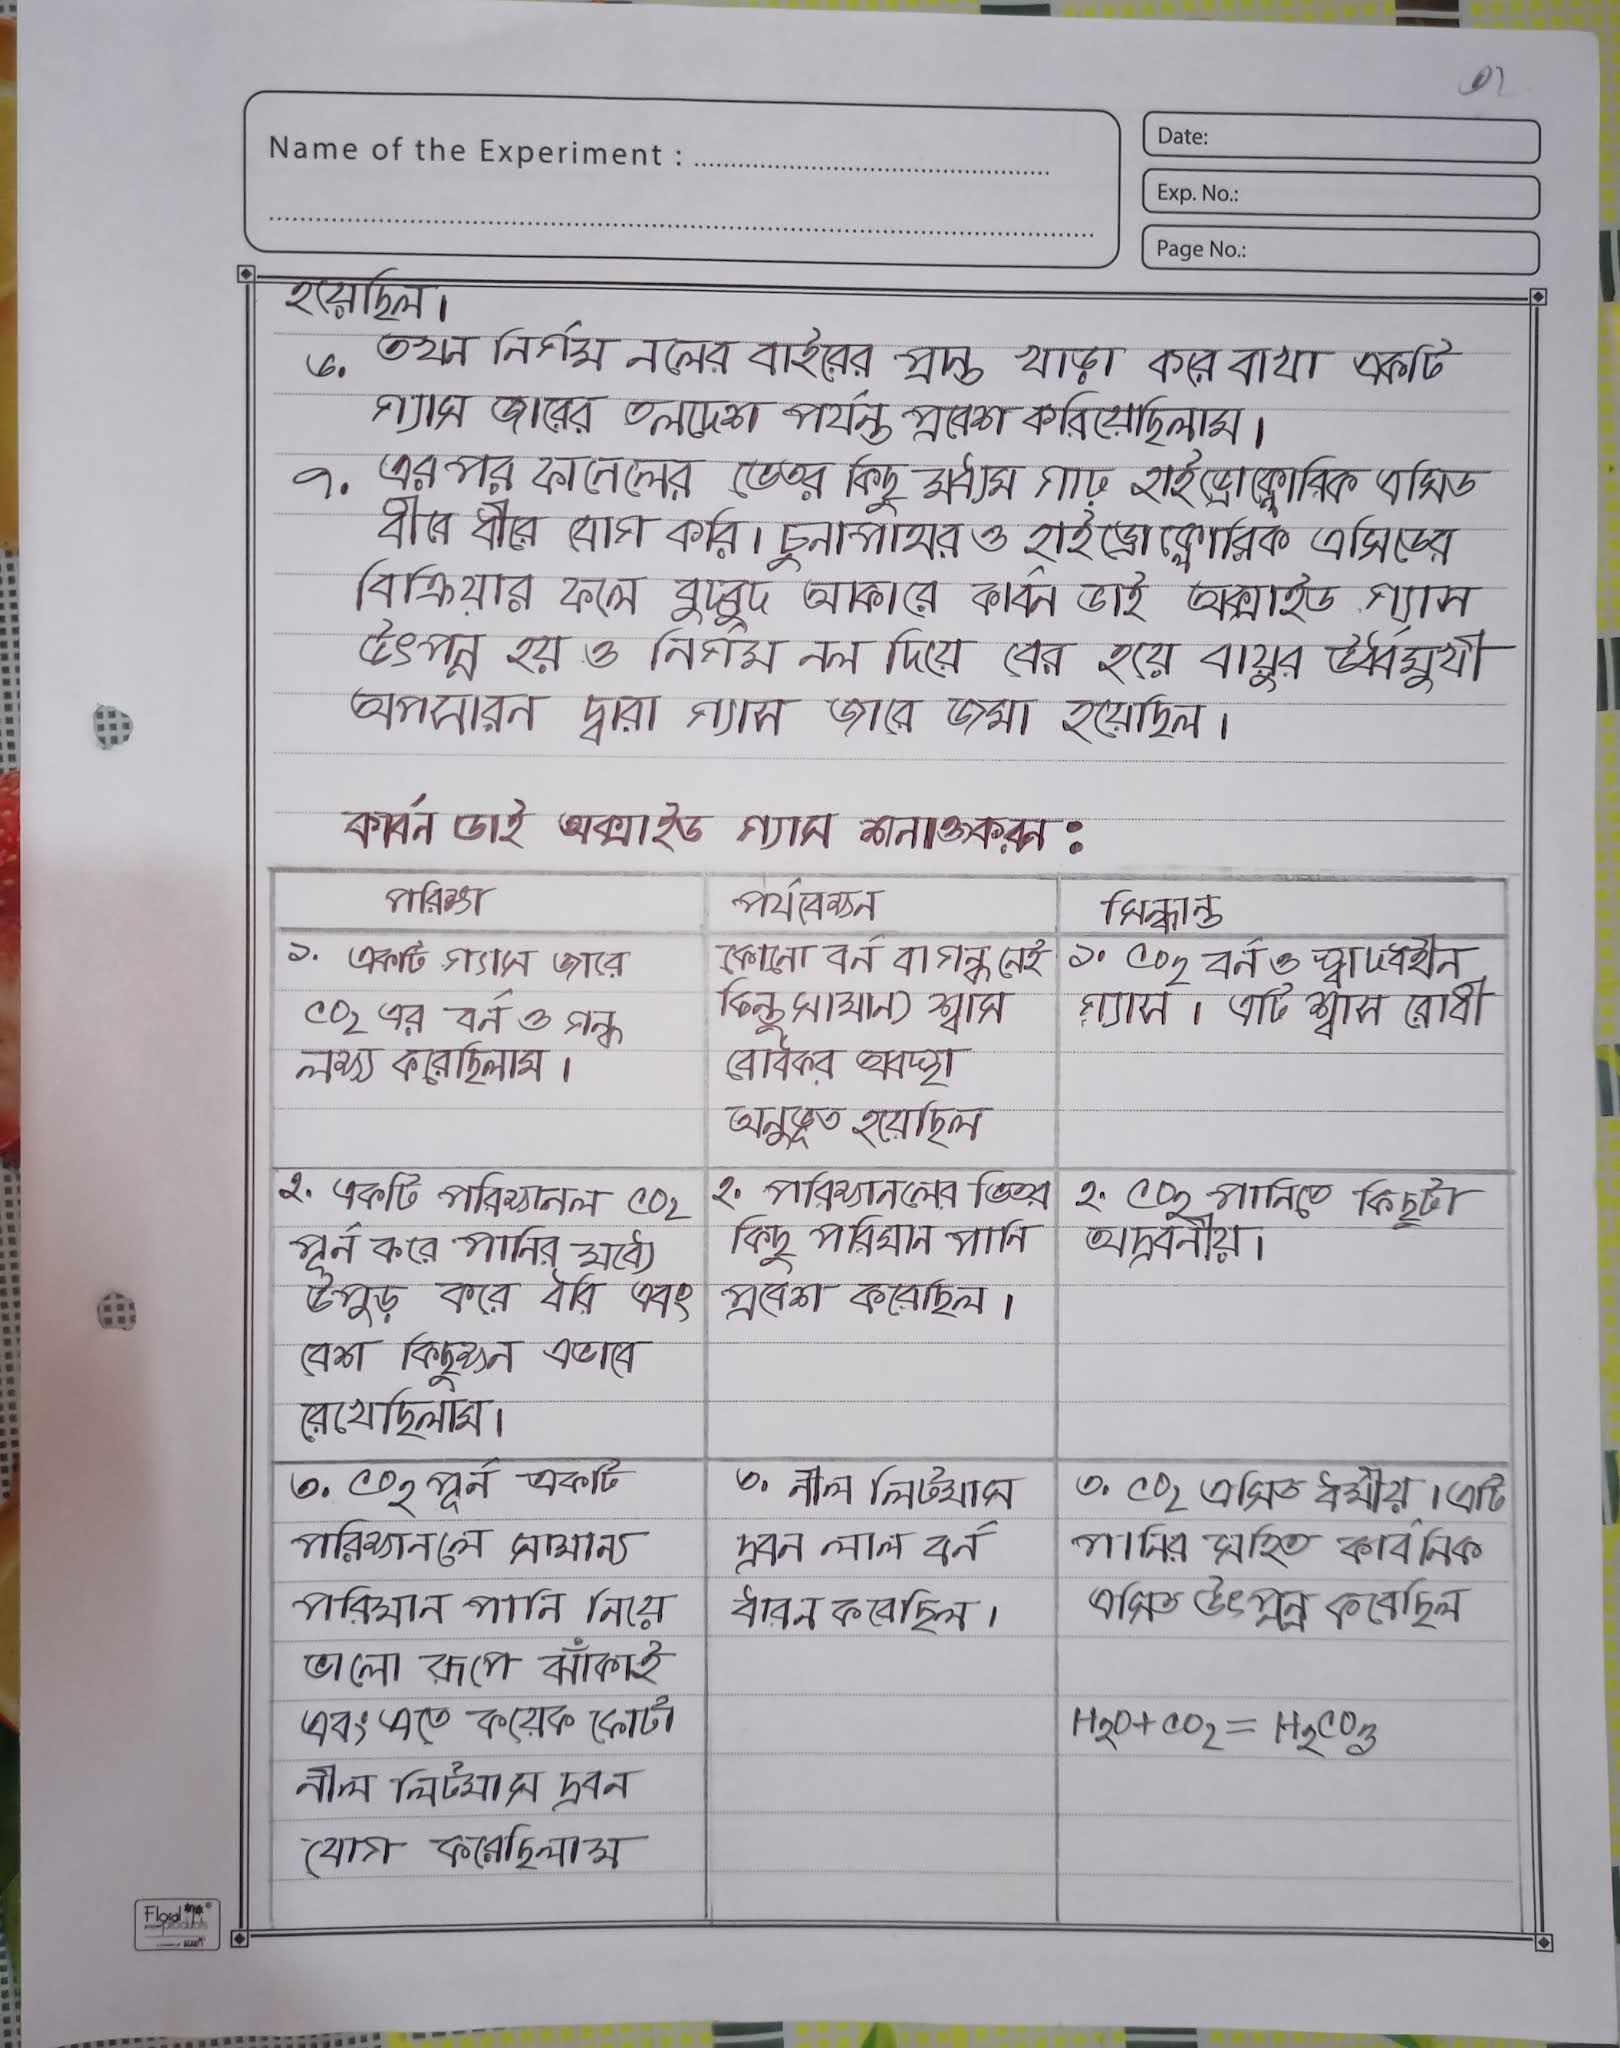 ০২
Name of the Experiment :
Date:
Exp. No.:
Page No.:
হয়েছিল।
৬. তখন নির্গম নলের বাইরের প্রান্ত খাড়া করে রাখা একটি
গ্যাস জারের তলদেশ পর্যন্ত প্রবেশ করিয়েছিলাম।
৭. এরপর ফানেলের ভেতর কিছু মধ্যম গাঢ় হাইড্রোক্লোরিক এসিড
ধীরে ধীরে যোগ করি। চুনাপাথর ও হাইড্রোক্লোরিক এসিডের
বিক্রিয়ার ফলে বুদবুদ আকারে কার্বন ডাই অক্সাইড গ্যাস
উৎপন্ন হয় ও নির্গম নল দিয়ে বের হয়ে বায়ুর উর্ধ্বমুখী
অপসারন দ্বারা গ্যাস জারে জমা হয়েছিল।
কার্বন ডাই অক্সাইড গ্যাস শনাক্তকরন:
পরিক্ষা পর্যবেক্ষন সিদ্ধান্ত
১. একটি গ্যাস জারে
CO2 এর বর্ন ও গন্ধ
লক্ষ্য করেছিলাম।
কোনো বর্ন বা গন্ধ নেই
কিন্তু সামান্য শ্বাস
রোধকর অবস্থা
অনুভূত হয়েছিল
১. CO2 বর্ন ও স্বাদহীন
গ্যাস। এটি শ্বাস রোধী
২. একটি পরিক্ষানল CO2
পূর্ন করে পানির মধ্যে
উপুড় করে ধরি এবং
বেশ কিছুক্ষন এভাবে
রেখেছিলাম।
২. পরিক্ষানলের ভিতর
কিছু পরিমান পানি
প্রবেশ করেছিল।
২. CO2 পানিতে কিছুটা
অদ্রবনীয়।
৩. CO2 পূর্ন একটি
পরিক্ষানলে সামান্য
পরিমান পানি নিয়ে
ভালো রূপে ঝাঁকাই
এবং এতে কয়েক ফোটা
নীল লিটমাস দ্রবন
যোগ করেছিলাম
৩. নীল লিটমাস
দ্রবন লাল বর্ন
ধারন করেছিল।
৩. CO2 এসিড ধর্মীয়। এটি
পানির সহিত কার্বনিক
এসিড উৎপন্ন করেছিল
H2O+CO2 = H2CO3
Floral
products